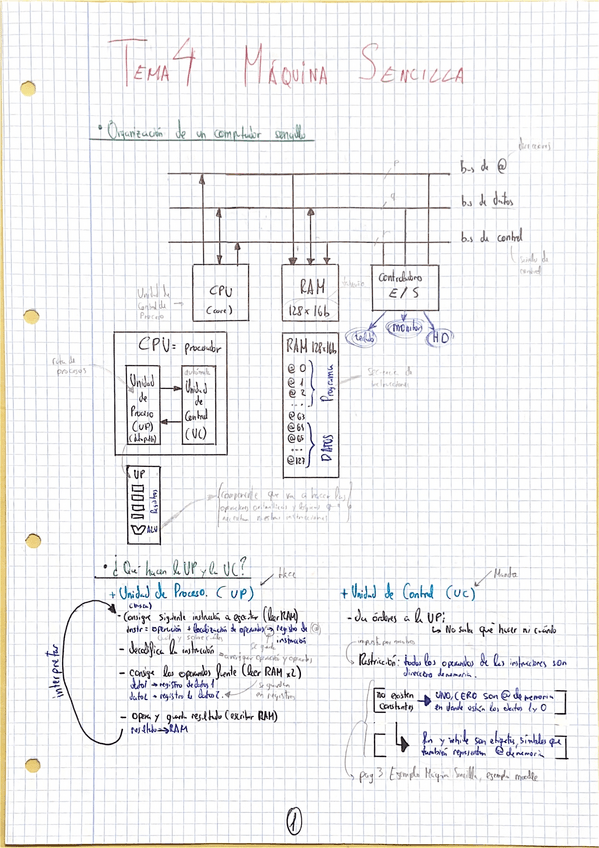 TEMA 4 MÁQUINA SENCILLA
• Organización de un computador sencillo
direcciones
bus de @
bus de datos
bus de control
señales de control
CPU
(core)
RAM
128 x 16b
Controladores
E/S
Unidad de
Control de
Proceso
teclado
monitor
HD
CPU = procesador
Unidad
de
Proceso
(UP)
(datapath)
Unidad
de
Control
(UC)
ruta de
procesos
RAM 128x16b
@ 0
@ 1
@ 2
...
@ 63
@ 64
@ 65
...
@ 127
Programa
DATOS
secuencia de
instrucciones
UP
Registros
ALU
• ¿Qué hacen la UP y la UC?
+ Unidad de Proceso. (UP)
Hace
(busca)
- consigue siguiente instrucción a ejecutar (leer RAM)
instr = operación + localización de operandos → registro de
instrucción
- decodifica la instrucción
conseguir operación y operandos
- consigue los operandos fuente (leer RAM x2)
dato1 → registro de datos 1
dato2 → registro de datos 2.
se guardan
en registros
- opera y guarda resultado (escribir RAM)
resultado → RAM
interpretar
+ Unidad de Control (UC)
Manda
- da órdenes a la UP;
↳ No sabe qué hacer ni cuándo
Restricción: todos los operandos de las instrucciones son
direcciones de memoria.
no existen
constantes
UNO, CERO son @ de memoria
en donde están los efectos 1 y 0
fin y while son etiquetas, símbolos que
también representan @ de memoria
pag 3 Ejemplo Máquina Sencilla, ejemplo moodle
1